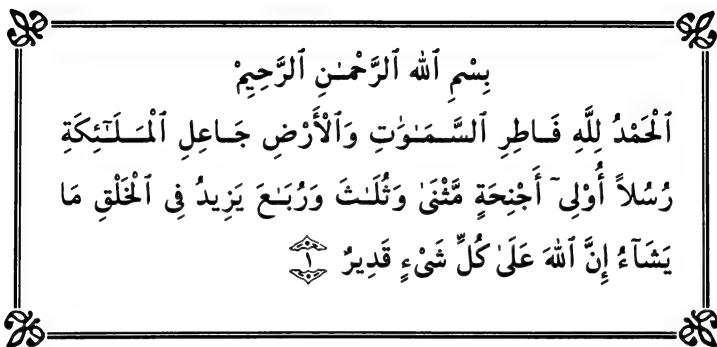 بِسْمِ ٱللهِ ٱلرَّحْمَـٰنِ ٱلرَّحِيمِْ
ٱلْحَمْدُ لِلَّهِ فَـاطِرِ ٱلسَّـمَـٰوَٰتِ وَٱلْأَرْضِ جَـاعِلِ ٱلْمَـلَـٰٓئِكَةِ
رُسُلاً أُوْلِىٓ أَجْنِحَةٍ مَّثْنَىٰ وَثُلَـٰثَ وَرُبَـٰعَ يَزِيدُ فِى ٱلْخَلْقِ مَا
يَشَآءُ إِنَّ ٱللهَ عَلَىٰ كُلِّ شَىْءٍ قَدِيرٌ ١